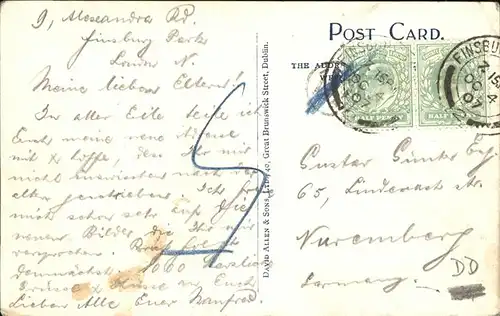 9, Alexandra Rd.
Finsbury Park
London N.
Meine lieben Eltern!
In aller Eile teile ich
Euch meine neue Adresse
mit & hoffe, dass Ihr mir
nicht
Ich
mich schon sehr auf die
neuen Bilder die Ihr mir
Brief folgt
demnächst. 1000 herzliche
Grüsse & Küsse an Euch
Lieben Alle Euer Manfred.
DAVID ALLEN & SONS, LTD., 40, GREAT BRUNSWICK STREET, DUBLIN.
POST CARD.
THE ADDRESS
HALF PENNY
HALF PENNY
FINSBURY
OC
07
FINSBU
OC
07
Gustav Günter Esq
65, Lindenast str.
Nuremberg
Germany.
DD